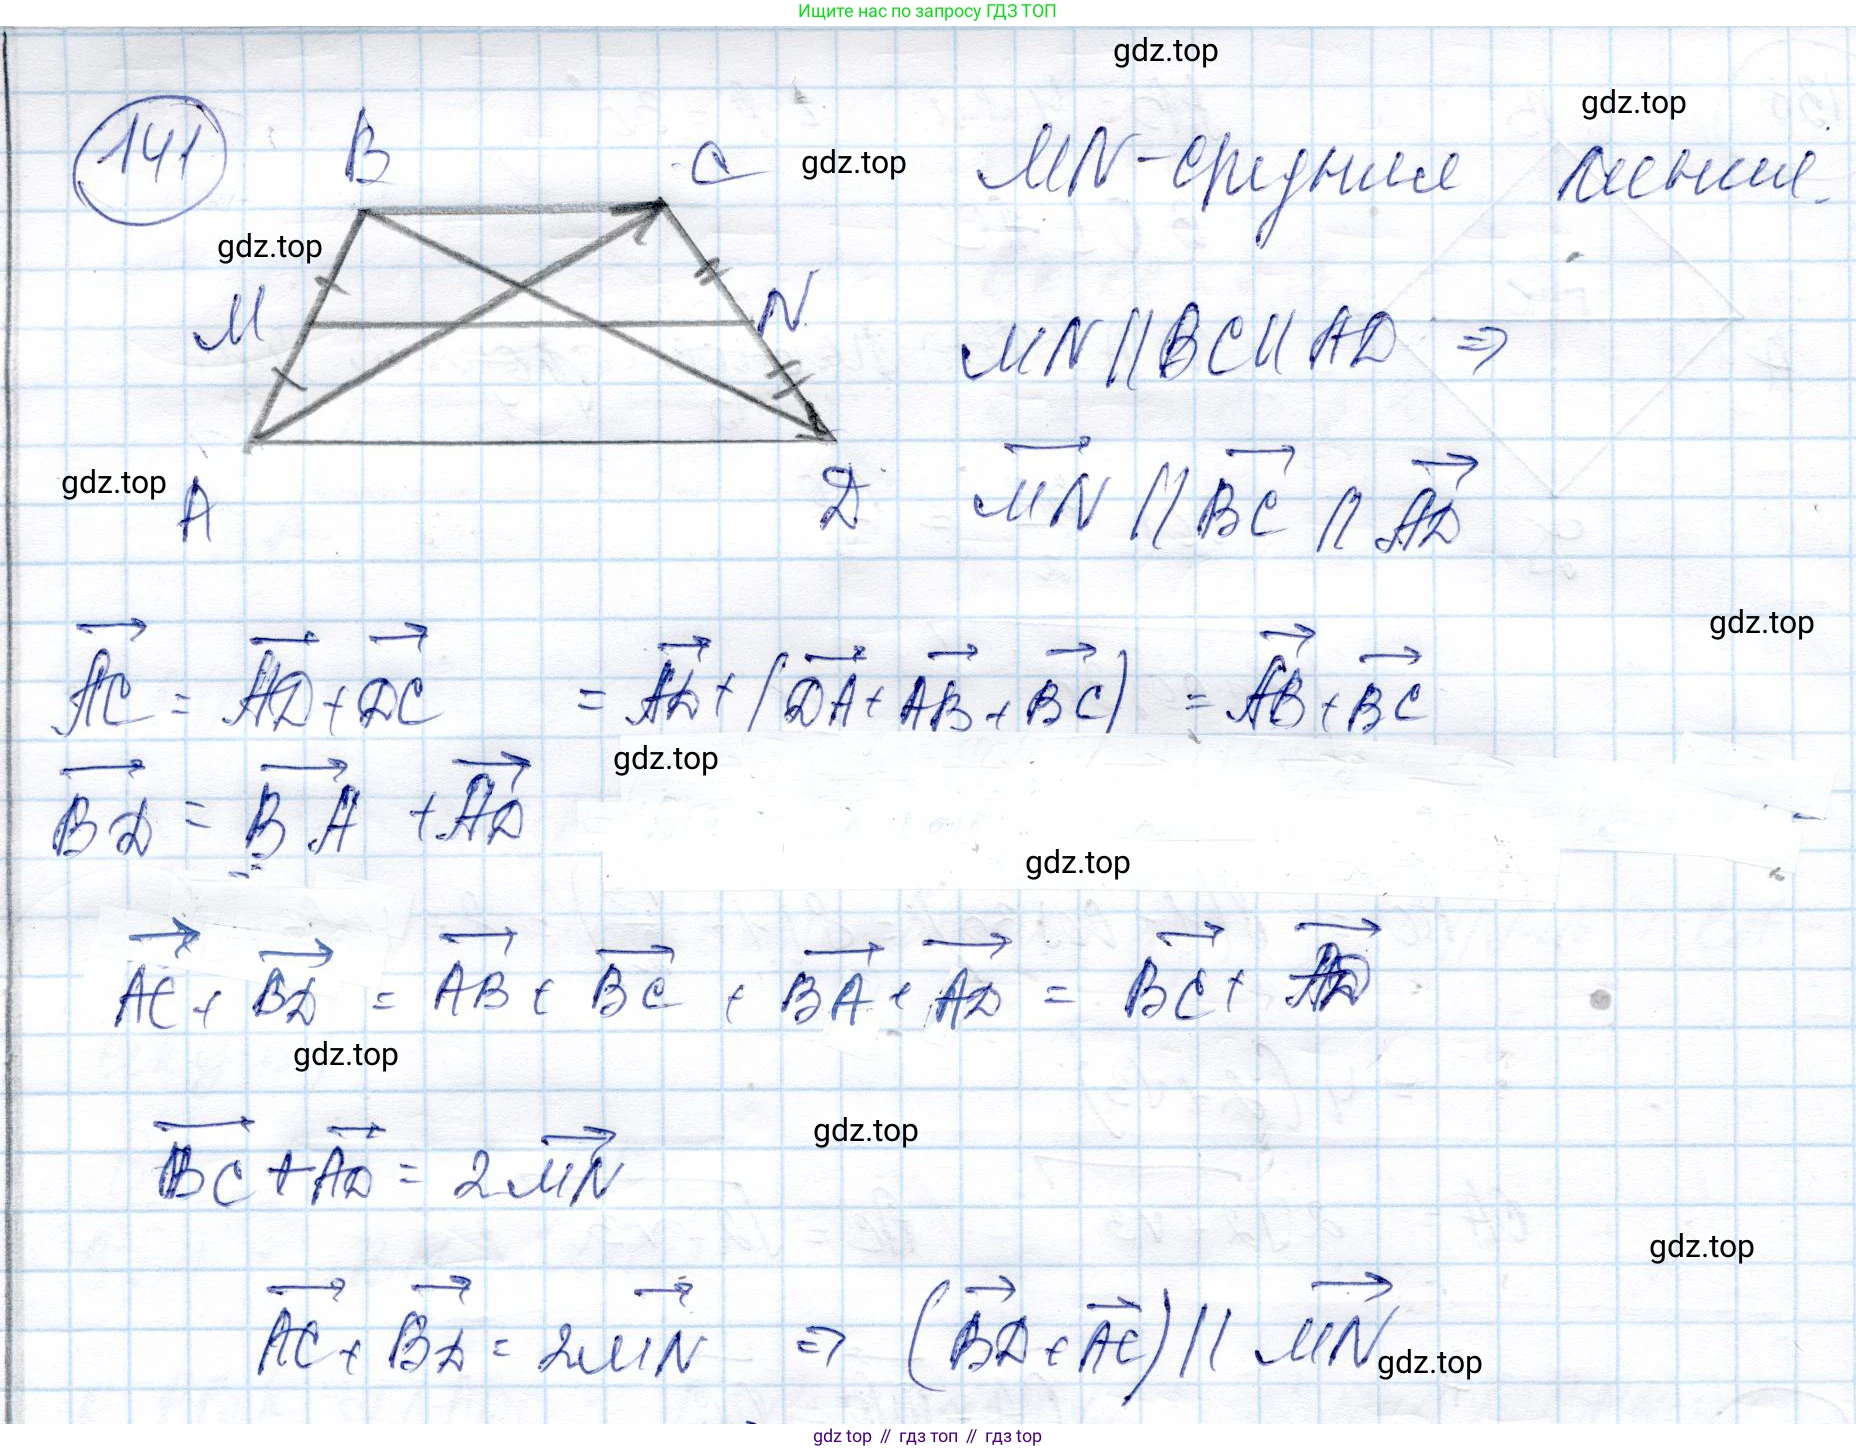 Ищите нас по запросу ГДЗ ТОП
gdz.top
gdz.top
141
B
C
gdz.top
MN - средняя линия.
gdz.top
M
N
MN || BC || AD ⇒
gdz.top
A
D
MN || BC || AD
gdz.top
AC = AD + DC = AD + (DA + AB + BC) = AB + BC
gdz.top
BD = BA + AD
gdz.top
AC + BD = AB + BC + BA + AD = BC + AD
gdz.top
gdz.top
BC + AD = 2MN
gdz.top
AC + BD = 2MN ⇒ (BD + AC) || MN
gdz.top
gdz top // гдз топ // гдз top